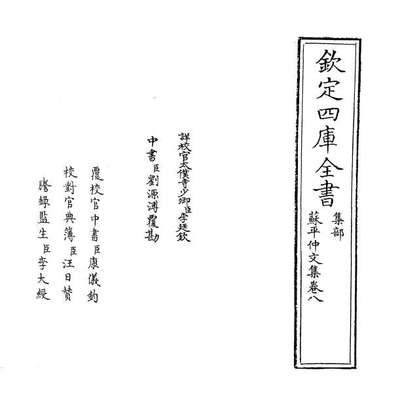 欽定四庫全書
集部
蘇平仲文集卷八
詳校官太僕寺少卿臣李廷欽
中書臣劉源溥覆勘
覆校官中書臣康儀鈞
校對官典簿臣汪日贊
謄錄監生臣李大綬